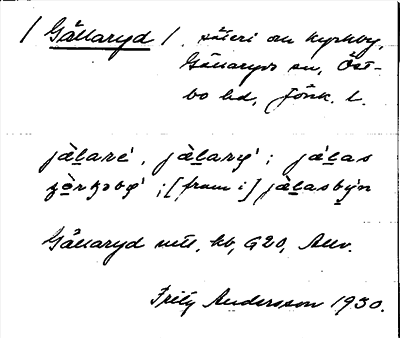 / Gällaryd / säteri o. kyrkby,
Gällaryds sn, Öst-
bo hd, Jönk. l.
jä̀laré, jä̀larý; jä́las
; [fram i] jä̀lasbýn
Gällaryd utt. kb, G20, Allv.
Fritz Andersson 1930.